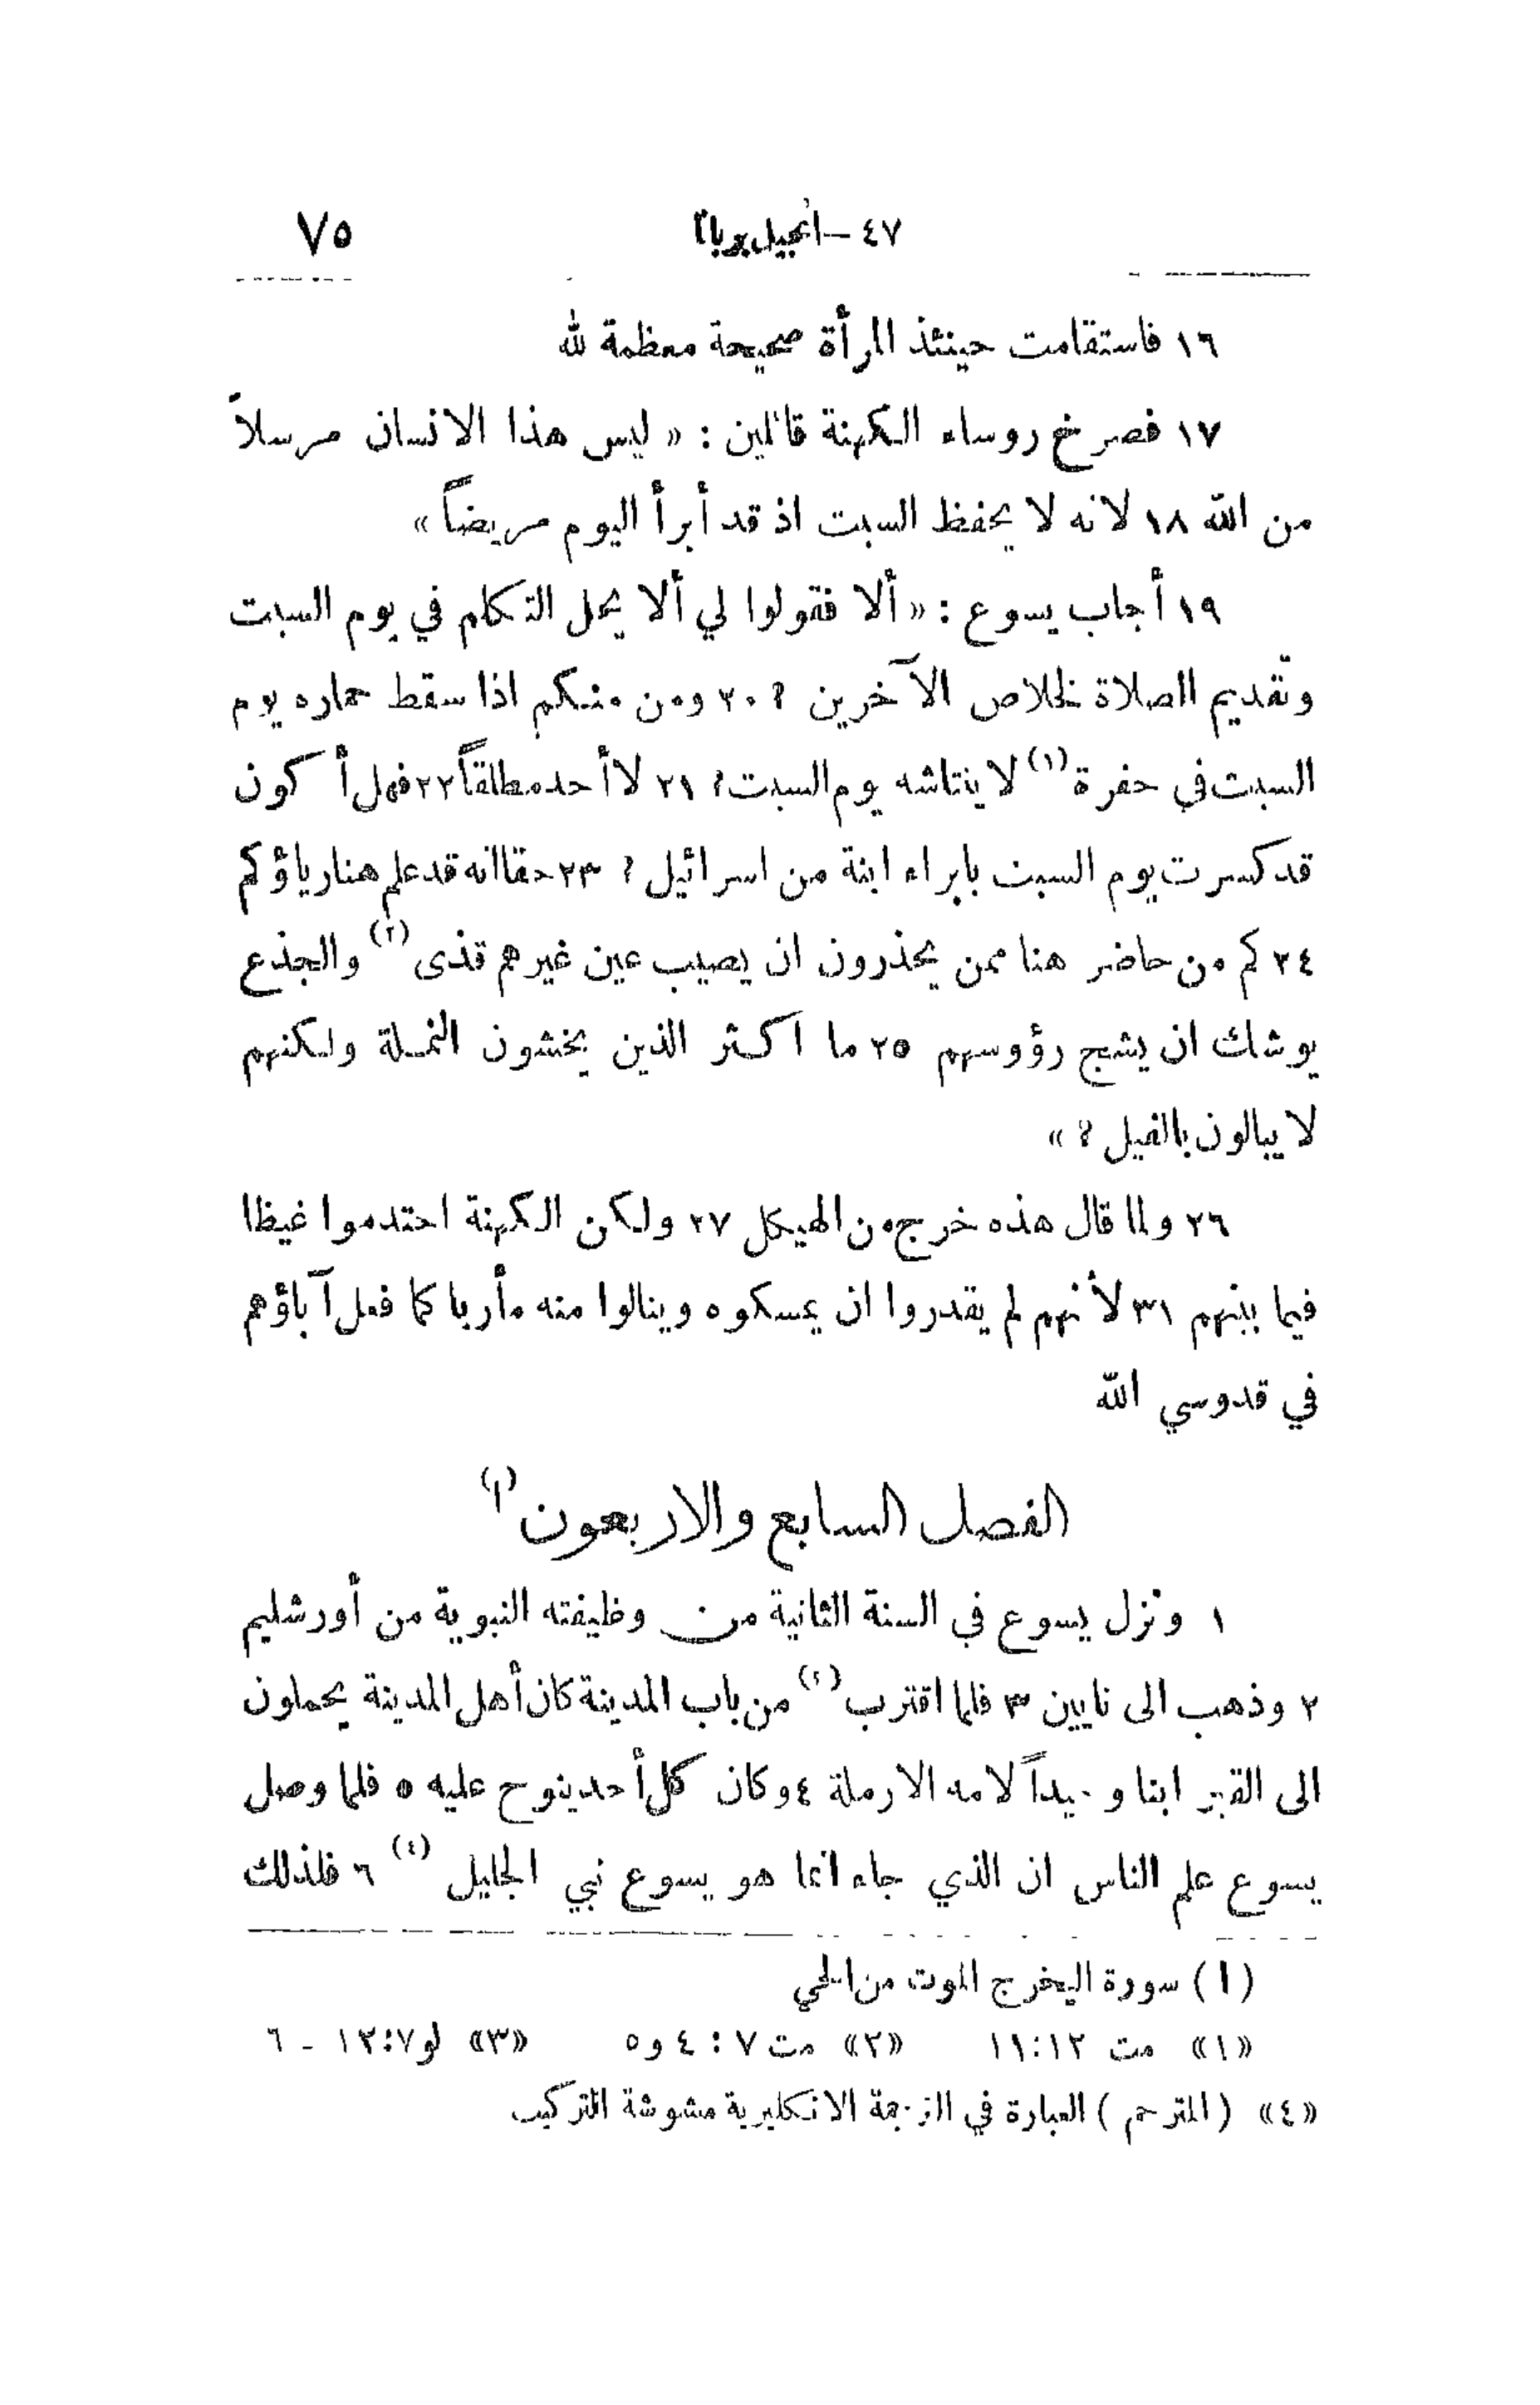 ٤٧ – انجيل برنابا ٧٥
١٦ فاستقامت حينئذ المرأة صحيحة معظمة لله
١٧ فصرخ روساء الكهنة قائلين : « ليس هذا الانسان مرسلاً
من الله ١٨ لانه لا يحفظ السبت اذ قد أبرأ اليوم مريضاً »
١٩ أجاب يسوع : « ألا فقولوا لي ألا يحل التكلم في يوم السبت
وتقديم الصلاة لخلاص الآخرين ؟ ٢٠ ومن منكم اذا سقط حماره يوم
السبت في حفرة (١) لا ينتاشه يوم السبت ؟ ٢١ لا أحد مطلقاً ٢٢ فهل أكون
قد كسرت يوم السبت بابراء ابنة من اسرائيل ؟ ٢٣ حقا انه قد علم هنا رياؤكم
٢٤ كم من حاضر هنا ممن يحذرون ان يصيب عين غيرهم قذى (٢) والجذع
يوشك ان يشج رؤوسهم ٢٥ ما اكثر الذين يخشون النملة ولكنهم
لا يبالون بالفيل ؟ »
٢٦ ولما قال هذه خرج من الهيكل ٢٧ ولكن الكهنة احتدموا غيظا
فيما بينهم ٣١ لأنهم لم يقدروا ان يمسكوه وينالوا منه مأربا كما فعل آباؤهم
في قدوسي الله
الفصل السابع والاربعون (١)
١ ونزل يسوع في السنة الثانية من وظيفته النبوية من أورشليم
٢ وذهب الى نايين ٣ فلما اقترب (٢) من باب المدينة كان أهل المدينة يحملون
الى القبر ابنا وحيداً لامه الارملة ٤ وكان كل أحد ينوح عليه ٥ فلما وصل
يسوع علم الناس ان الذي جاء انما هو يسوع نبي الجليل (٤) ٦ فلذلك
(ا) سورة اليخرج الموت من الحي
«١» مت ١٢:١١ «٢» مت ٧ : ٤ و٥ «٣» لو٧:١٢ - ٦
«٤» (المترجم) العبارة في الترجمة الانكليرية مشوشة التركيب